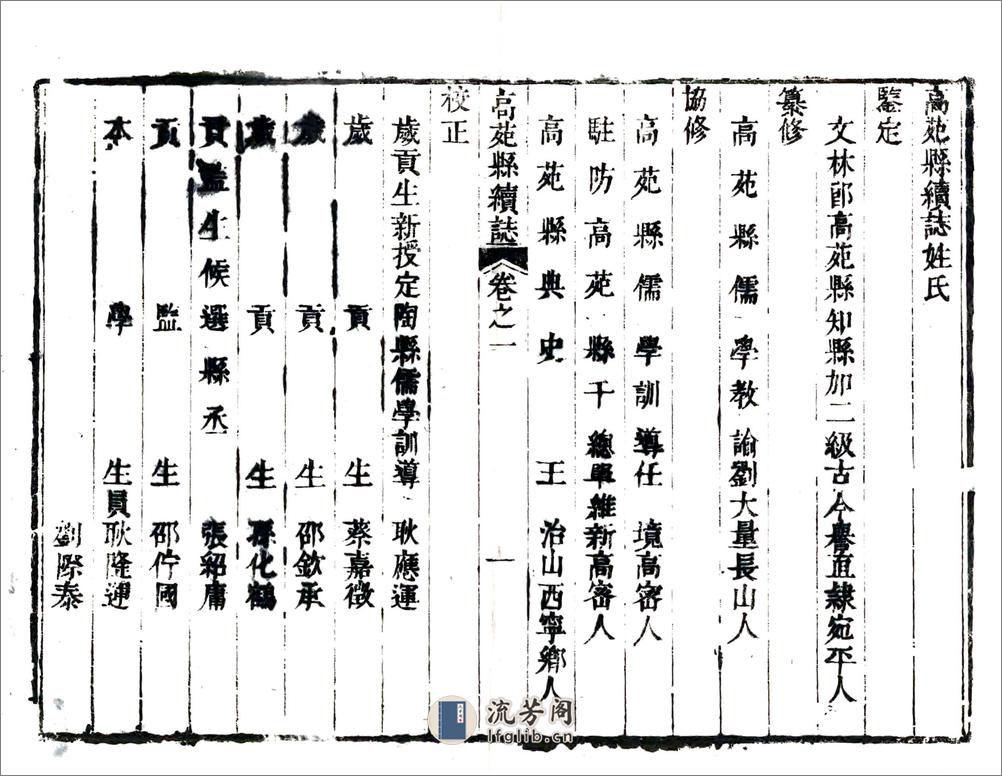 高苑縣續誌姓氏
鑒定
文林郎高苑縣知縣加二級古今譽直隸宛平人
纂修
高苑縣儒學教諭劉大量長山人
協修
高苑縣儒學訓導任境高密人
駐防高苑縣千總單維新高密人
高苑縣典史王治山西寧鄉人
高苑縣續誌 卷之一 一
校正
歲貢生新授定陶縣儒學訓導耿應運
歲貢生蔡嘉徵
歲貢生邵欽承
歲貢生孫化鶴
貢監生候選縣丞張紹庸
貢監生邵佇國
本學生員耿隆運
劉際泰
流芳阁
lfglib.cn